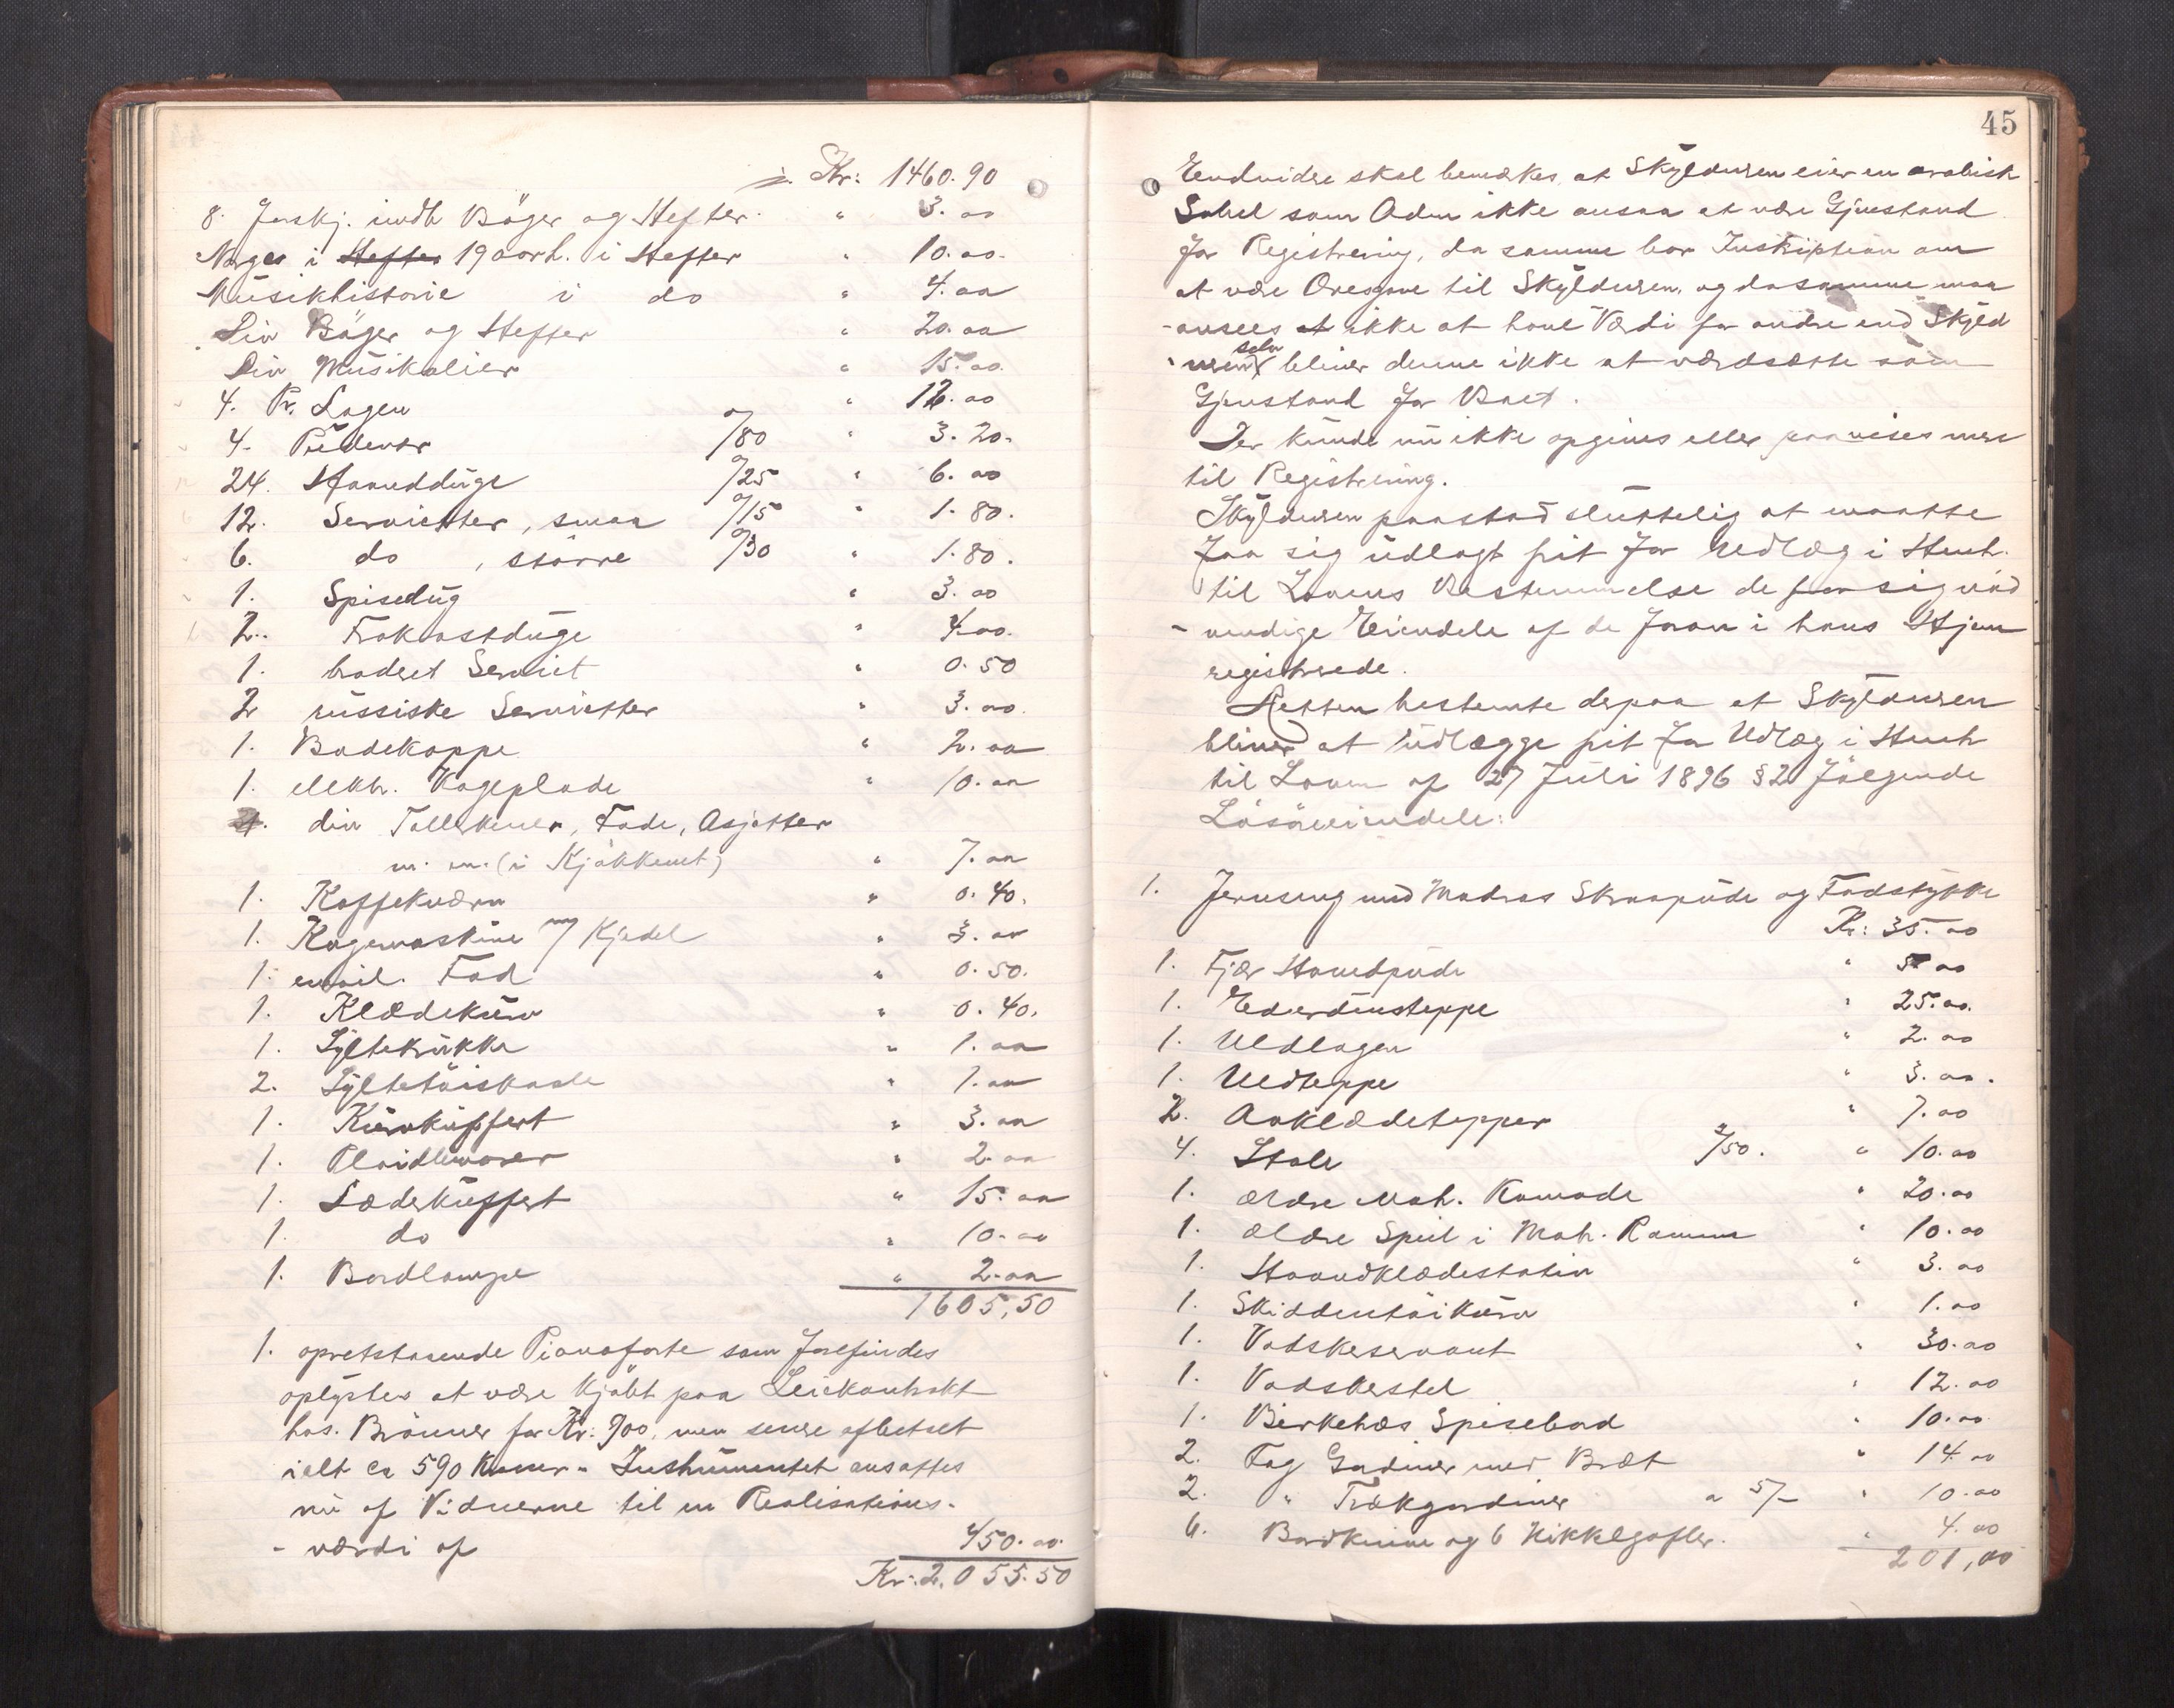 Kr: 1460.90
8. forskj. indb Böger og Hefter. " 3.00
Norges i Hefter 19 aarh. i Hefter " 10.00.
Musikhistorie i do " 4.00
Div Böger og Hefter " 20.00
Div Musikalier " 15.00.
4. Pr. Lagen " 12.00
4. Pudevar 0/80 " 3.20.
24. Haandduge 0/25 " 6.00
12. Servietter, smaa 0/15 " 1.80.
6. do, större 0/30 " 1.80.
1. Spisedug " 3.00
2. Frokostduge " 4.00.
1. broderet Serviet " 0.50
2 russiske Servietter " 3.00.
1. Badekappe " 2.00
1. elektr. Kogeplade " 10.00
div Tallerkener, Fade, Asjetter
m. m. (i Kjøkkenet) " 7.00
1. Kaffekværn " 0.40.
1. Kogemaskine m/ Kjedel " 3.00
1. email. Fad " 0.50.
1. Klædekurv " 0.40.
1. Syltekrukke " 1.00
2. Syltetöiskaale " 1.00
1. Kurvkuffert " 3.00
1. Plaidlemmer " 2.00
1. Læderkuffert " 15.00
1. do " 10.00
1. Bordlampe " 2.00
1605,50
1. opretstaaende Pianoforte som forefindes
oplystes at være kjöbt paa Leiekontrakt
hos. Brönner for Kr: 900, men senere afbetalt
ialt ca 590 Kroner - Instrumentet ansattes
nu af Vidnerne til en Realisations-
- værdi af 450.00.
Kr: 2.055.50
45
Endvidere skal bemærkes at Skyldneren eier en arabisk
Sabel som Adm ikke ansaa at være Gjenstand
for Registrering, da samme bar Inskription om
at være Æresgave til Skyldneren, og da samme maa
- ansees at ikke at have Værdi for andre end Skyld
- neren selv bliver denne ikke at værdsætte som
Gjenstand for Boet.
Der kunde nu ikke opgives eller paavises mere
til Registrering.
Skyldneren paastod sluttelig at maatte
faa sig udlagt frit for Udlæg i Henh.
til Lovens Bestemmelse de for sig nöd
- vendige Eiendele af de foran i hans Hjem
registrerede.
Retten bestemte derpaa at Skyldneren
bliver at udlægge frit for Udlæg i Henh
til Loven af 27 Juli 1896 § 2 följende
Lösöreeiendele:
1. Jernseng med Madras Skraapude og Fodstykke
Kr: 35.00
1. Fjær Hovedpude " 5.00
1. Ederdunsteppe " 25.00.
1. Uldlagen " 2.00
1. Uldteppe " 3.00.
2. Aaklædetepper " 7.00
4. Stole 2/50. " 10.00
1. ældre Mah. Komode " 20.00
1. ældre Speil i Mah. Ramme " 10.00
1. Haandklædestativ " 3.00
1. Skiddentöikurv " 1.00
1. Vadskeservant " 30.00
1. Vadskestel " 12.00
1. Birketræs Spisebord " 10.00
2. Fag Gardiner med Bræt " 14.00
2. " Trækgardiner a 5/- " 10.00
6. Bordknive og 6 Nikkelgafler. " 4.00
201,00